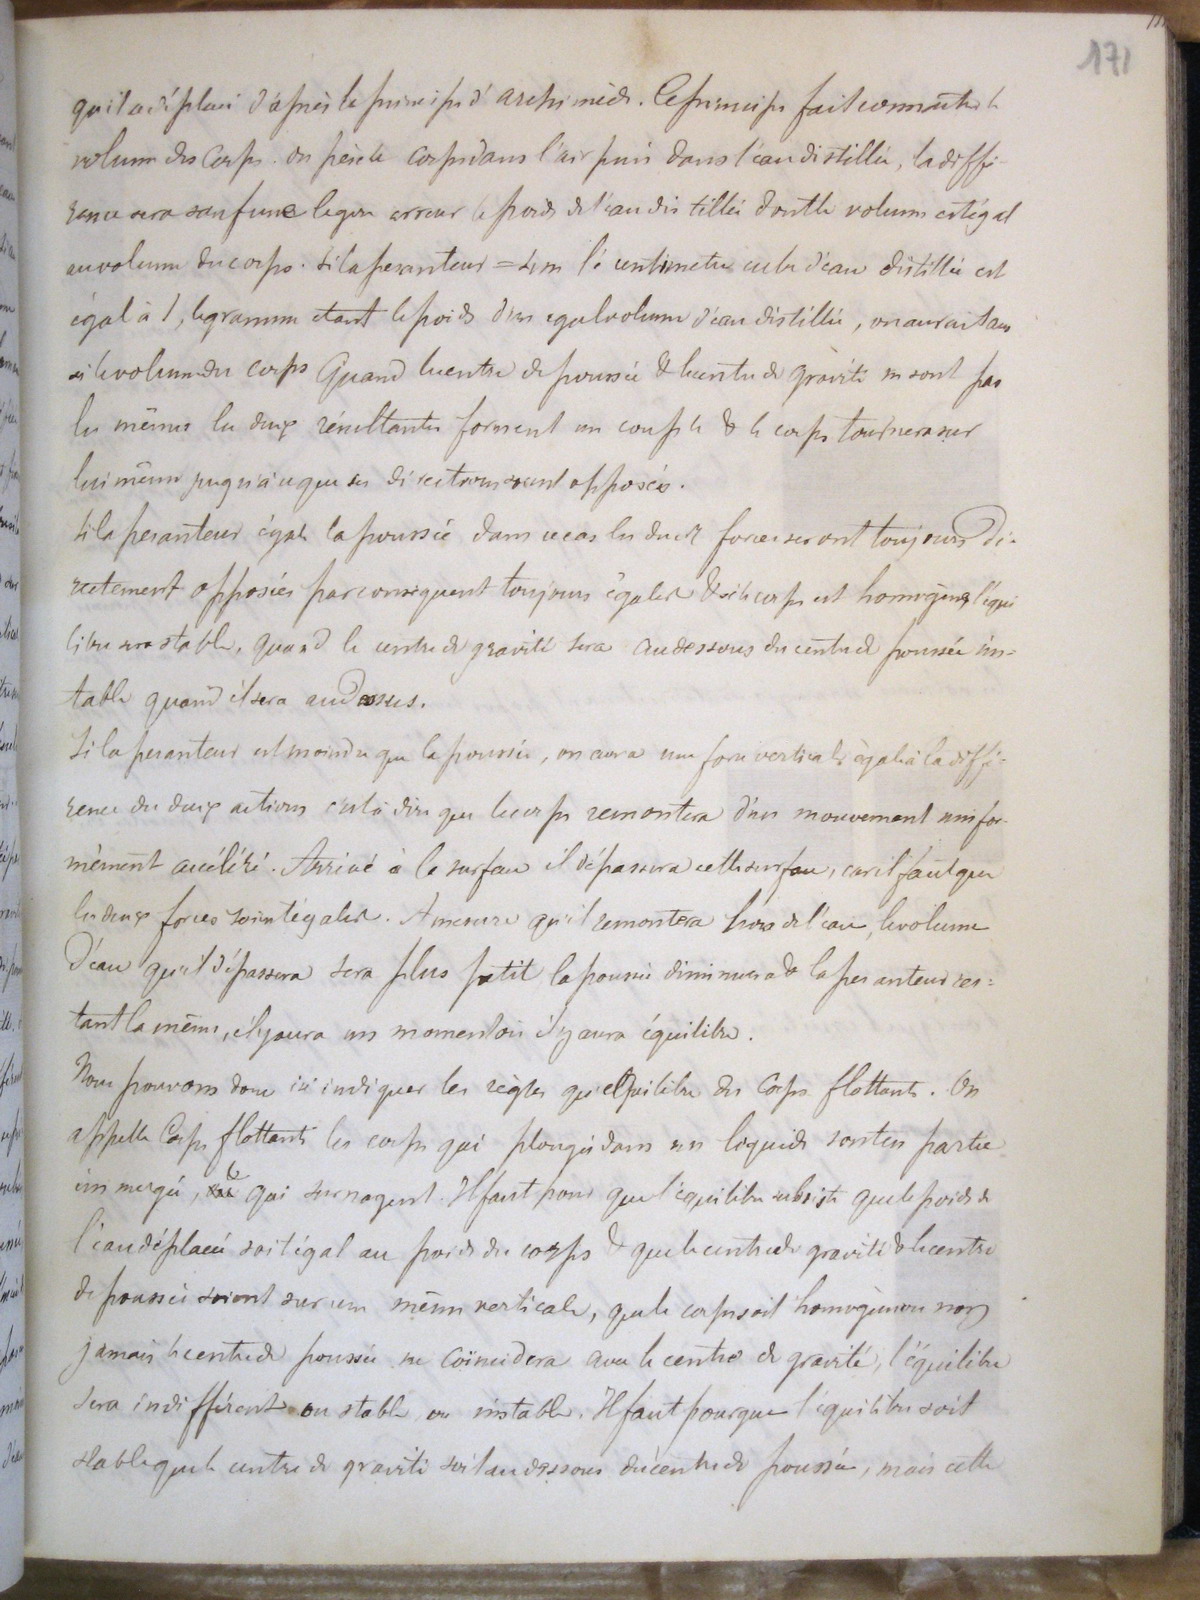 171
qu'il a déplacé d'après le principe d'archimède. Ce principe fait connaître le
volume des Corps. on pèse le corps dans l'air puis dans l'eau distillée, la diffé-
rence sera sauf une légère erreur le poids de l'eau distillée dont le volume est égal
au volume du corps. Si la pesanteur = le centimetre cube d'eau distillée est
égal à 1, le gramme étant le poids d'un égal volume d'eau distillée, on aurait
le volume du corps Quand le centre de poussée & le centre de gravité ne sont pas
les mêmes les deux résultantes forment un couple & le corps tournera sur
lui même jusqu'à ce que ses directions soient opposées.
Si la pesanteur égale la poussée dans ce cas les deux forces seront toujours di-
rectement opposées par conséquent toujours égales & si le corps est homogène l'équi
libre sera stable, quand le centre de gravité sera au dessous du centre de poussée ins-
table quand il sera au dessus.
Si la pesanteur est moindre que la poussée, on aura une force verticale égale à la diffé-
rence des deux actions c'est à dire que le corps remontera d'un mouvement unifor-
mément accéléré. Arrivé à la surface il dépassera cette surface, car il faut que
les deux forces soient égales. A mesure qu'il remontera hors de l'eau, le volume
D'eau qu'il dépassera sera plus petit la poussée diminuera & la pesanteur res-
tant la même, il y aura un moment où il y aura équilibre.
Nous pouvons donc ici indiquer les règles équilibre des Corps flottants. On
appelle Corps flottants les corps qui plongés dans un liquide sont en partie
immergé, & qui surnagent. Il faut pour que l'équilibre subsiste que le poids de
l'eau déplacée soit égal au poids du corps & que le centre de gravité & le centre
de poussée soient sur une même verticale, que le corps soit homogène ou non
jamais le centre de poussée ne coïncidera avec le centre de gravité, l'équilibre
sera indifférent ou stable ou instable. Il faut pour que l'équilibre soit
stable que le centre de gravité soit au dessous du centre de poussée, mais cette